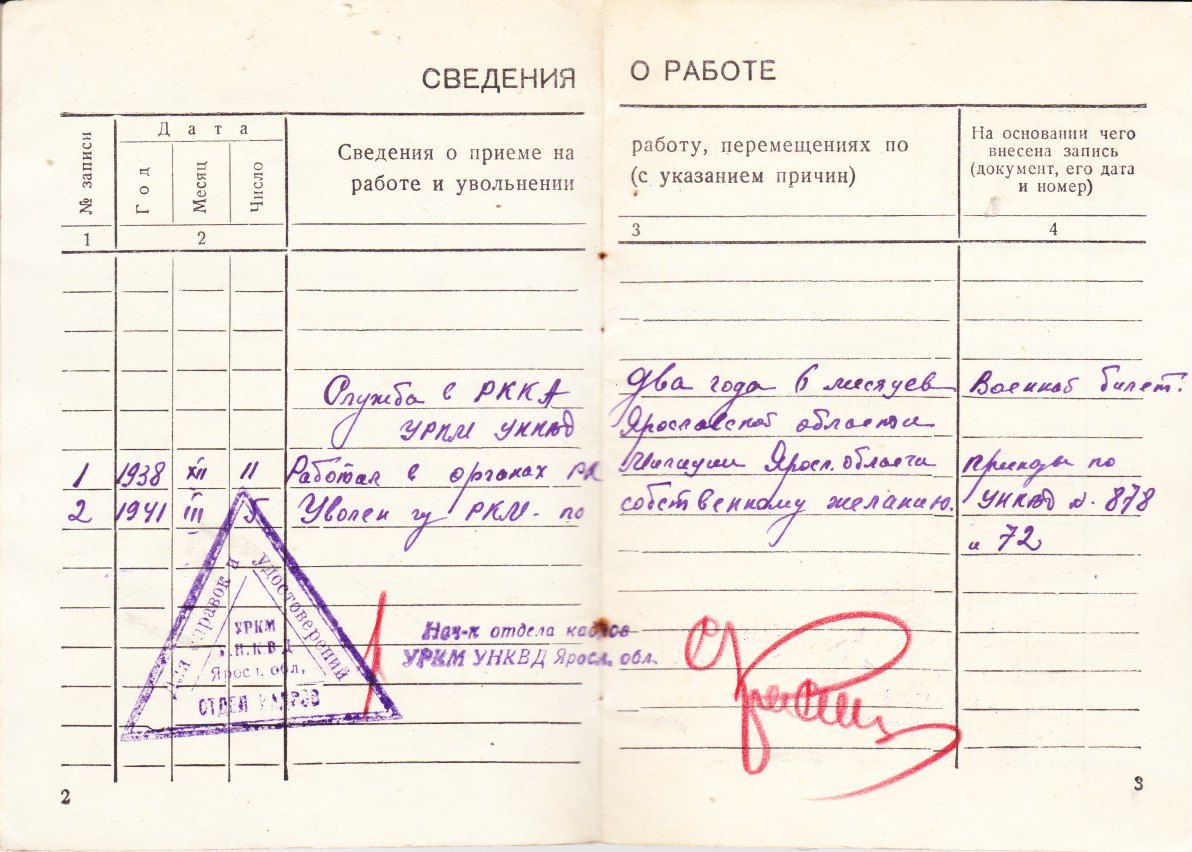 СВЕДЕНИЯ О РАБОТЕ
№ записи
Дата
Год
Месяц
Число
Сведения о приеме на работу, перемещениях по
работе и увольнении (с указанием причин)
На основании чего
внесена запись
(документ, его дата
и номер)
1 2 3 4
Служба в РККА Два года 6 месяцев Военной билет.
УРКМ УНКВД Ярославской области
1 1938 XII 11 Работал в органах РК Милиции Яросл. области приказы по
2 1941 III 5 Уволен из РКМ. по собственному желанию. УНКВД №. 878
и 72
Для справок и удостоверений
УРКМ
У.Н.КВД
Яросл. обл.
ОТДЕЛ КАДРОВ
Нач-к отдела кадров
УРКМ УНКВД Яросл. обл.
2 3